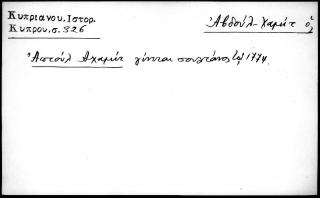 Κυπριανου. Ιστορ.
Κυπρου. σ. 326
Ἀβδούλ-Χαμίτ ὁ
Ἀπτούλ Ἀχαμίτ γίνεται σουλτάνος τῷ 1774.